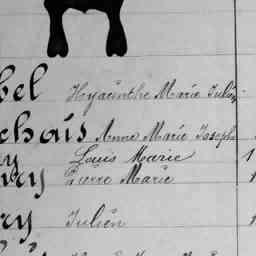 bel Hyacinthe Marie Julien
chais Anne Marie Joseph
y Louis Marie 1
vry Pierre Marie 1
ry Julien 1